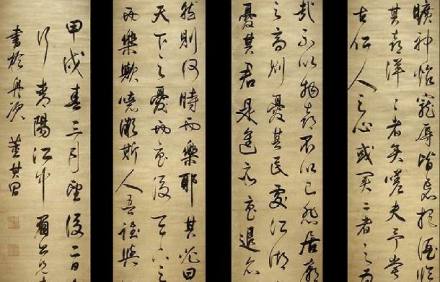 曠神怡寵辱皆忘把酒臨
其喜洋洋者矣嗟夫予嘗
古仁人之心或異二者之爲
哉不以物喜不以己悲居廟
之高則憂其民處江湖
憂其君是進亦憂退亦
然則何時而樂耶其必曰
天下之憂而憂後天下之
而樂歟噫微斯人吾誰與
甲戌春三月望後二日
行青陽江中
書於舟次 董其昌